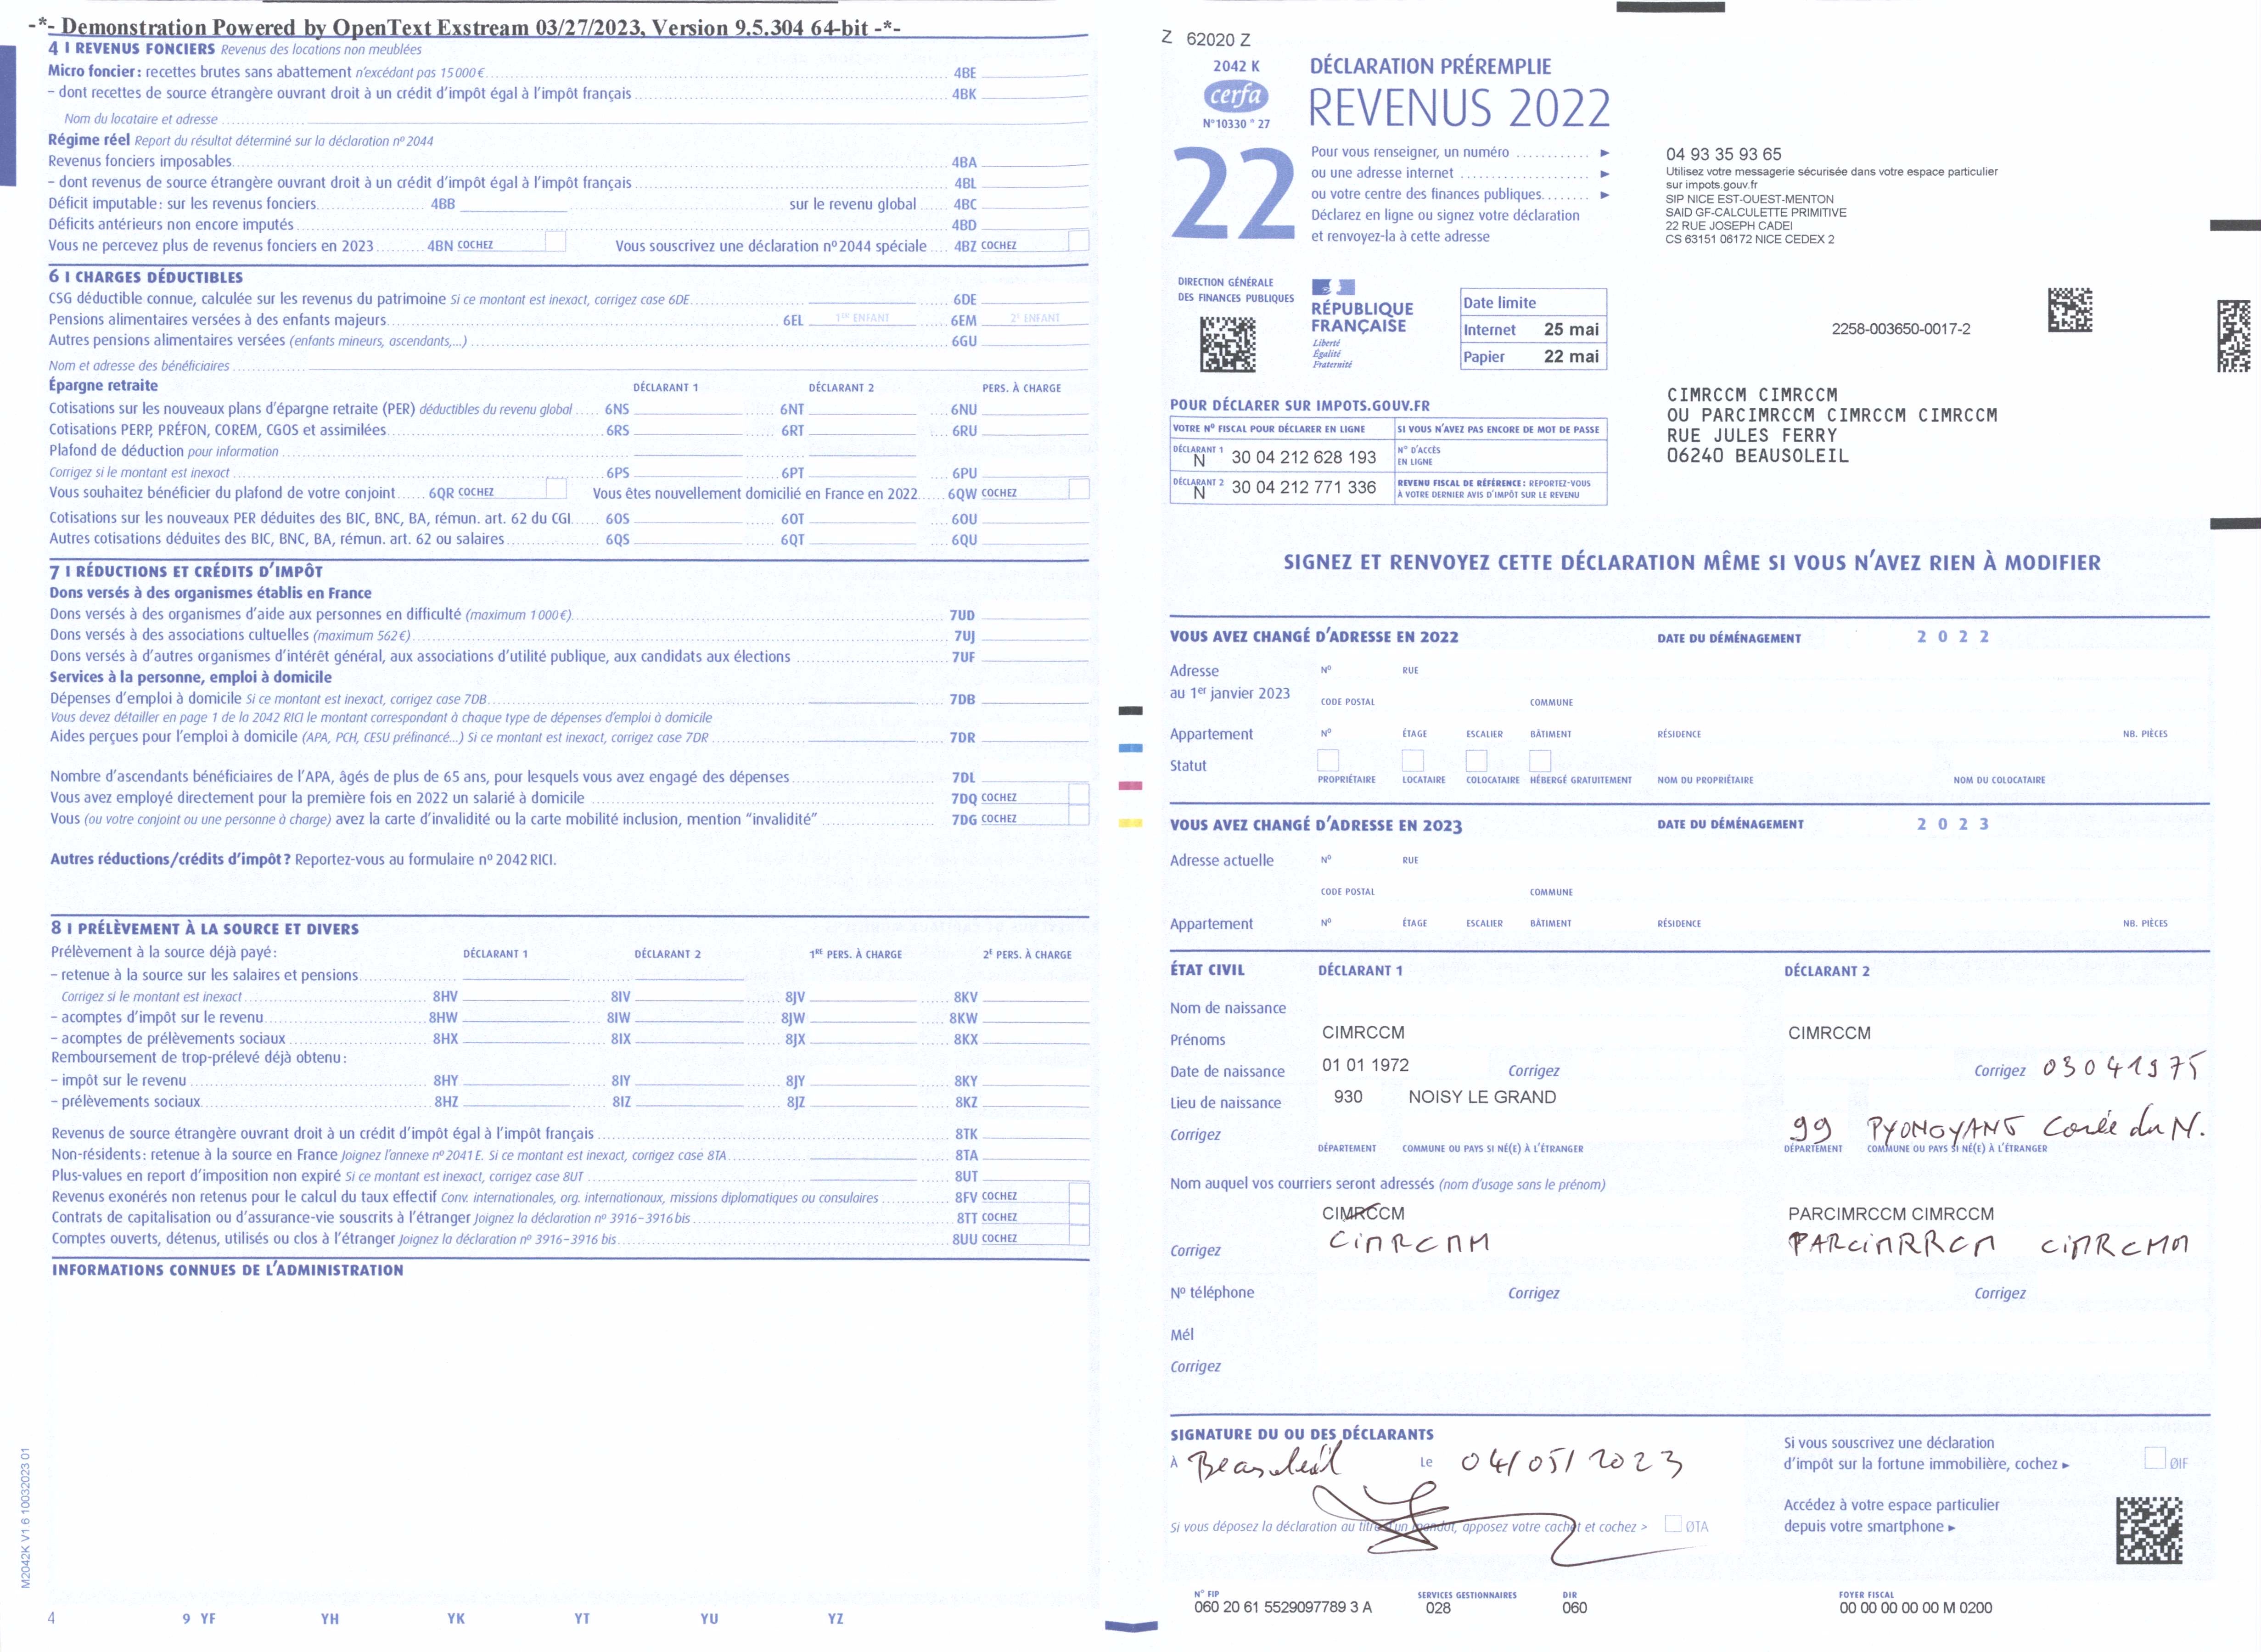 -*- Demonstration Powered by OpenText Exstream 03/27/2023, Version 9.5.304 64-bit -*-
4 I REVENUS FONCIERS Revenus des locations non meublées
Micro foncier : recettes brutes sans abattement n'excédant pas 15 000 € 4BE
– dont recettes de source étrangère ouvrant droit à un crédit d'impôt égal à l'impôt français 4BK
Nom du locataire et adresse
Régime réel Report du résultat déterminé sur la déclaration nº 2044
Revenus fonciers imposables 4BA
– dont revenus de source étrangère ouvrant droit à un crédit d'impôt égal à l'impôt français 4BL
Déficit imputable : sur les revenus fonciers 4BB sur le revenu global 4BC
Déficits antérieurs non encore imputés 4BD
Vous ne percevez plus de revenus fonciers en 2023 4BN COCHEZ Vous souscrivez une déclaration nº 2044 spéciale 4BZ COCHEZ
6 I CHARGES DÉDUCTIBLES
CSG déductible connue, calculée sur les revenus du patrimoine Si ce montant est inexact, corrigez case 6DE 6DE
Pensions alimentaires versées à des enfants majeurs 6EL 1ER ENFANT 6EM 2E ENFANT
Autres pensions alimentaires versées (enfants mineurs, ascendants,...) 6GU
Nom et adresse des bénéficiaires
Épargne retraite DÉCLARANT 1 DÉCLARANT 2 PERS. À CHARGE
Cotisations sur les nouveaux plans d'épargne retraite (PER) déductibles du revenu global 6NS 6NT 6NU
Cotisations PERP, PRÉFON, COREM, CGOS et assimilées 6RS 6RT 6RU
Plafond de déduction pour information
Corrigez si le montant est inexact 6PS 6PT 6PU
Vous souhaitez bénéficier du plafond de votre conjoint 6QR COCHEZ Vous êtes nouvellement domicilié en France en 2022 6QW COCHEZ
Cotisations sur les nouveaux PER déduites des BIC, BNC, BA, rémun. art. 62 du CGI 6OS 6OT 6OU
Autres cotisations déduites des BIC, BNC, BA, rémun. art. 62 ou salaires 6QS 6QT 6QU
7 I RÉDUCTIONS ET CRÉDITS D'IMPÔT
Dons versés à des organismes établis en France
Dons versés à des organismes d'aide aux personnes en difficulté (maximum 1 000 €) 7UD
Dons versés à des associations cultuelles (maximum 562 €) 7UJ
Dons versés à d'autres organismes d'intérêt général, aux associations d'utilité publique, aux candidats aux élections 7UF
Services à la personne, emploi à domicile
Dépenses d'emploi à domicile Si ce montant est inexact, corrigez case 7DB 7DB
Vous devez détailler en page 1 de la 2042 RICI le montant correspondant à chaque type de dépenses d'emploi à domicile
Aides perçues pour l'emploi à domicile (APA, PCH, CESU préfinancé...) Si ce montant est inexact, corrigez case 7DR 7DR
Nombre d'ascendants bénéficiaires de l'APA, âgés de plus de 65 ans, pour lesquels vous avez engagé des dépenses 7DL
Vous avez employé directement pour la première fois en 2022 un salarié à domicile 7DQ COCHEZ
Vous (ou votre conjoint ou une personne à charge) avez la carte d'invalidité ou la carte mobilité inclusion, mention “invalidité” 7DG COCHEZ
Autres réductions/crédits d'impôt ? Reportez-vous au formulaire nº 2042 RICI.
8 I PRÉLÈVEMENT À LA SOURCE ET DIVERS
Prélèvement à la source déjà payé : DÉCLARANT 1 DÉCLARANT 2 1RE PERS. À CHARGE 2E PERS. À CHARGE
– retenue à la source sur les salaires et pensions
Corrigez si le montant est inexact 8HV 8IV 8JV 8KV
– acomptes d'impôt sur le revenu 8HW 8IW 8JW 8KW
– acomptes de prélèvements sociaux 8HX 8IX 8JX 8KX
Remboursement de trop-prélevé déjà obtenu :
– impôt sur le revenu 8HY 8IY 8JY 8KY
– prélèvements sociaux 8HZ 8IZ 8JZ 8KZ
Revenus de source étrangère ouvrant droit à un crédit d'impôt égal à l'impôt français 8TK
Non-résidents : retenue à la source en France Joignez l'annexe nº 2041 E. Si ce montant est inexact, corrigez case 8TA 8TA
Plus-values en report d'imposition non expiré Si ce montant est inexact, corrigez case 8UT 8UT
Revenus exonérés non retenus pour le calcul du taux effectif Conv. internationales, org. internationaux, missions diplomatiques ou consulaires 8FV COCHEZ
Contrats de capitalisation ou d'assurance-vie souscrits à l'étranger Joignez la déclaration nº 3916–3916 bis 8TT COCHEZ
Comptes ouverts, détenus, utilisés ou clos à l'étranger Joignez la déclaration nº 3916–3916 bis 8UU COCHEZ
INFORMATIONS CONNUES DE L'ADMINISTRATION
M2042K V1.6 10032023 01
4 9 YF YH YK YT YU YZ
Z 62020 Z
2042 K
cerfa
N° 10330 * 27
DÉCLARATION PRÉREMPLIE
REVENUS 2022
22
Pour vous renseigner, un numéro ►
ou une adresse internet ►
ou votre centre des finances publiques ►
Déclarez en ligne ou signez votre déclaration
et renvoyez-la à cette adresse
04 93 35 93 65
Utilisez votre messagerie sécurisée dans votre espace particulier
sur impots.gouv.fr
SIP NICE EST-OUEST-MENTON
SAID GF-CALCULETTE PRIMITIVE
22 RUE JOSEPH CADEI
CS 63151 06172 NICE CEDEX 2
DIRECTION GÉNÉRALE
DES FINANCES PUBLIQUES
RÉPUBLIQUE
FRANÇAISE
Liberté
Égalité
Fraternité
Date limite
Internet 25 mai
Papier 22 mai
2258-003650-0017-2
CIMRCCM CIMRCCM
OU PARCIMRCCM CIMRCCM CIMRCCM
RUE JULES FERRY
06240 BEAUSOLEIL
POUR DÉCLARER SUR IMPOTS.GOUV.FR
VOTRE Nº FISCAL POUR DÉCLARER EN LIGNE SI VOUS N'AVEZ PAS ENCORE DE MOT DE PASSE
DÉCLARANT 1 N 30 04 212 628 193 N° D'ACCÈS EN LIGNE
DÉCLARANT 2 N 30 04 212 771 336 REVENU FISCAL DE RÉFÉRENCE : REPORTEZ-VOUS
À VOTRE DERNIER AVIS D'IMPÔT SUR LE REVENU
SIGNEZ ET RENVOYEZ CETTE DÉCLARATION MÊME SI VOUS N'AVEZ RIEN À MODIFIER
VOUS AVEZ CHANGÉ D'ADRESSE EN 2022 DATE DU DÉMÉNAGEMENT 2 0 2 2
Adresse Nº RUE
au 1er janvier 2023 CODE POSTAL COMMUNE
Appartement Nº ÉTAGE ESCALIER BÂTIMENT RÉSIDENCE NB. PIÈCES
Statut
PROPRIÉTAIRE LOCATAIRE COLOCATAIRE HÉBERGÉ GRATUITEMENT NOM DU PROPRIÉTAIRE NOM DU COLOCATAIRE
VOUS AVEZ CHANGÉ D'ADRESSE EN 2023 DATE DU DÉMÉNAGEMENT 2 0 2 3
Adresse actuelle Nº RUE
CODE POSTAL COMMUNE
Appartement Nº ÉTAGE ESCALIER BÂTIMENT RÉSIDENCE NB. PIÈCES
ÉTAT CIVIL DÉCLARANT 1 DÉCLARANT 2
Nom de naissance
Prénoms CIMRCCM CIMRCCM
Date de naissance 01 01 1972 Corrigez Corrigez 03041975
Lieu de naissance 930 NOISY LE GRAND
Corrigez 99 PYONGYANG Corée du N.
DÉPARTEMENT COMMUNE OU PAYS SI NÉ(E) À L'ÉTRANGER DÉPARTEMENT COMMUNE OU PAYS SI NÉ(E) À L'ÉTRANGER
Nom auquel vos courriers seront adressés (nom d'usage sans le prénom)
CIMRCCM PARCIMRCCM CIMRCCM
Corrigez CiMRCMM PARCiMRRCM CiMRCMM
Nº téléphone Corrigez Corrigez
Mél
Corrigez
SIGNATURE DU OU DES DÉCLARANTS
À Beausoleil Le 04/05/2023
Si vous déposez la déclaration au titre d'un mandat, apposez votre cachet et cochez > ØTA
Si vous souscrivez une déclaration
d'impôt sur la fortune immobilière, cochez ► ØIF
Accédez à votre espace particulier
depuis votre smartphone ►
N° FIP SERVICES GESTIONNAIRES DIR FOYER FISCAL
060 20 61 5529097789 3 A 028 060 00 00 00 00 00 M 0200